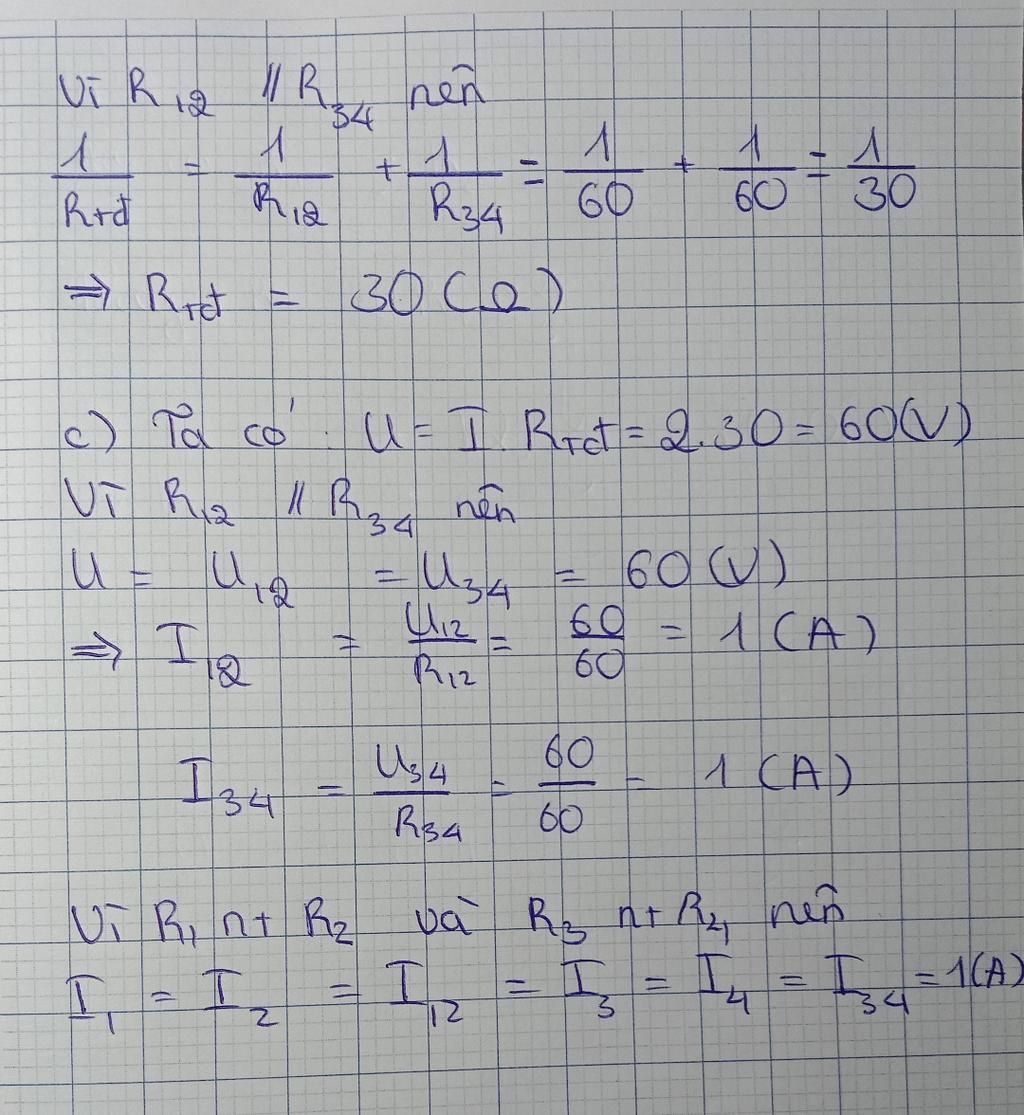 Vì R₁₂ // R₃₄ nên
1/Rtđ = 1/R₁₂ + 1/R₃₄ = 1/60 + 1/60 = 1/30
⇒ Rtđ = 30 (Ω)
c) Ta có: U = I. Rtđ = 2.30 = 60(V)
Vì R₁₂ // R₃₄ nên
U = U₁₂ = U₃₄ = 60 (V)
⇒ I₁₂ = U₁₂/R₁₂ = 60/60 = 1 (A)
I₃₄ = U₃₄/R₃₄ = 60/60 = 1 (A)
Vì R₁ nt R₂ và R₃ nt R₄ nên
I₁ = I₂ = I₁₂ = I₃ = I₄ = I₃₄ = 1(A)